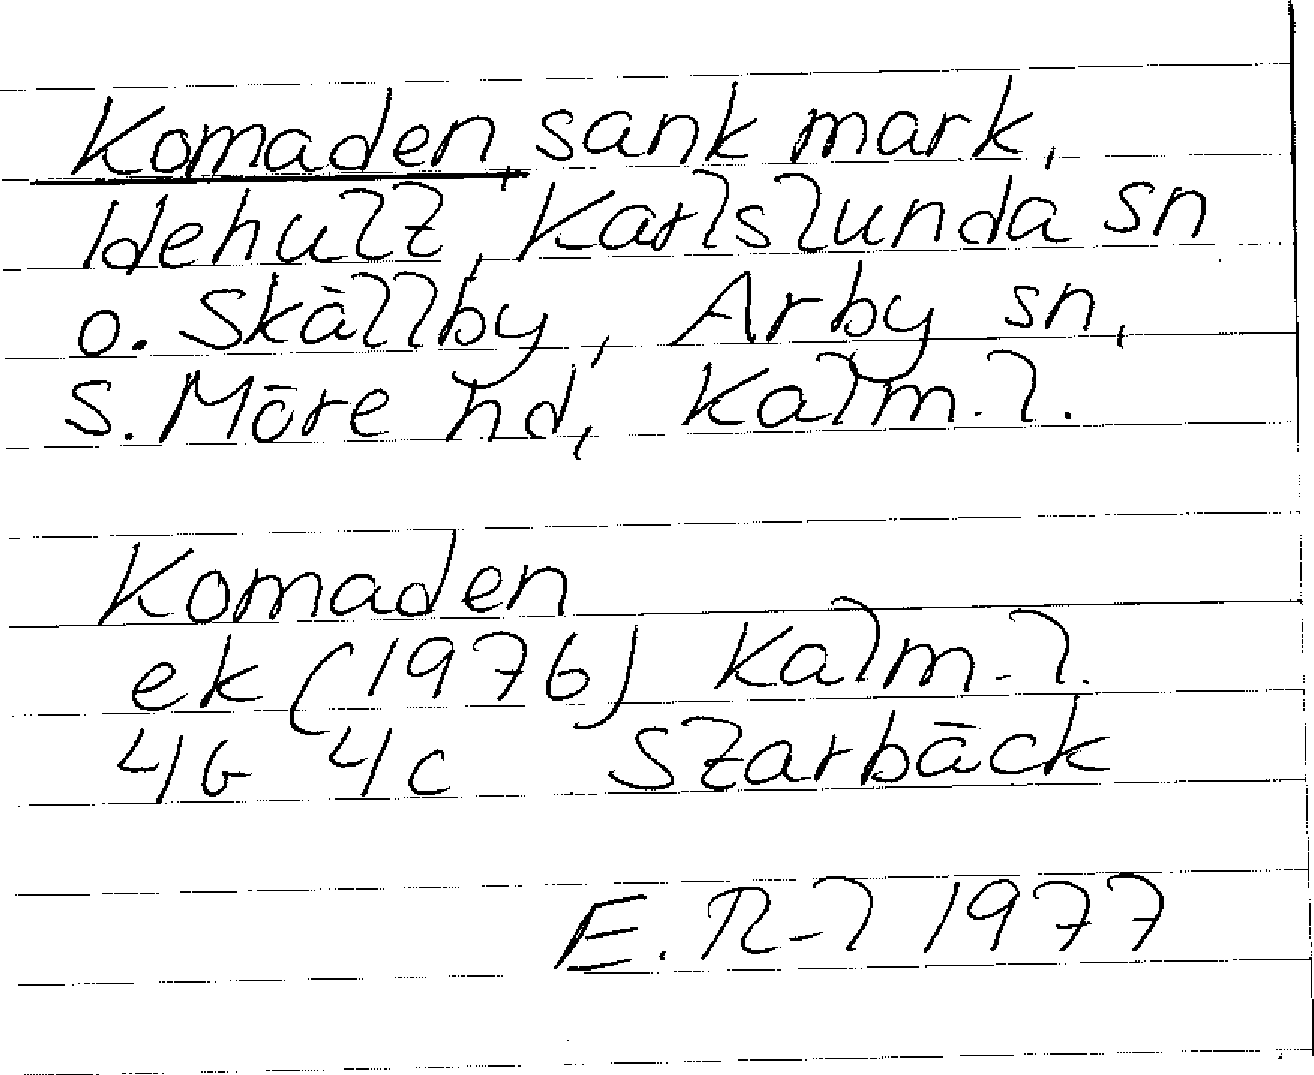 Komaden, sank mark,
Idehult, Karlslunda sn
o. Skällby, Arby sn,
S. Möre hd, Kalm. l.
Komaden
ek (1976) Kalm. l.
4G 4c Starbäck
E. R-l 1977